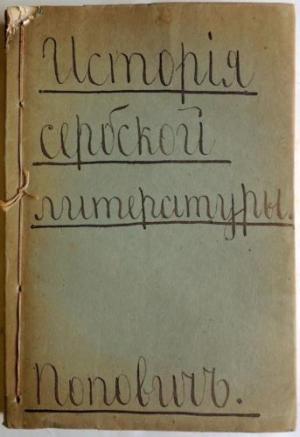 Исторія
сербской
литературы.
Поповичъ.